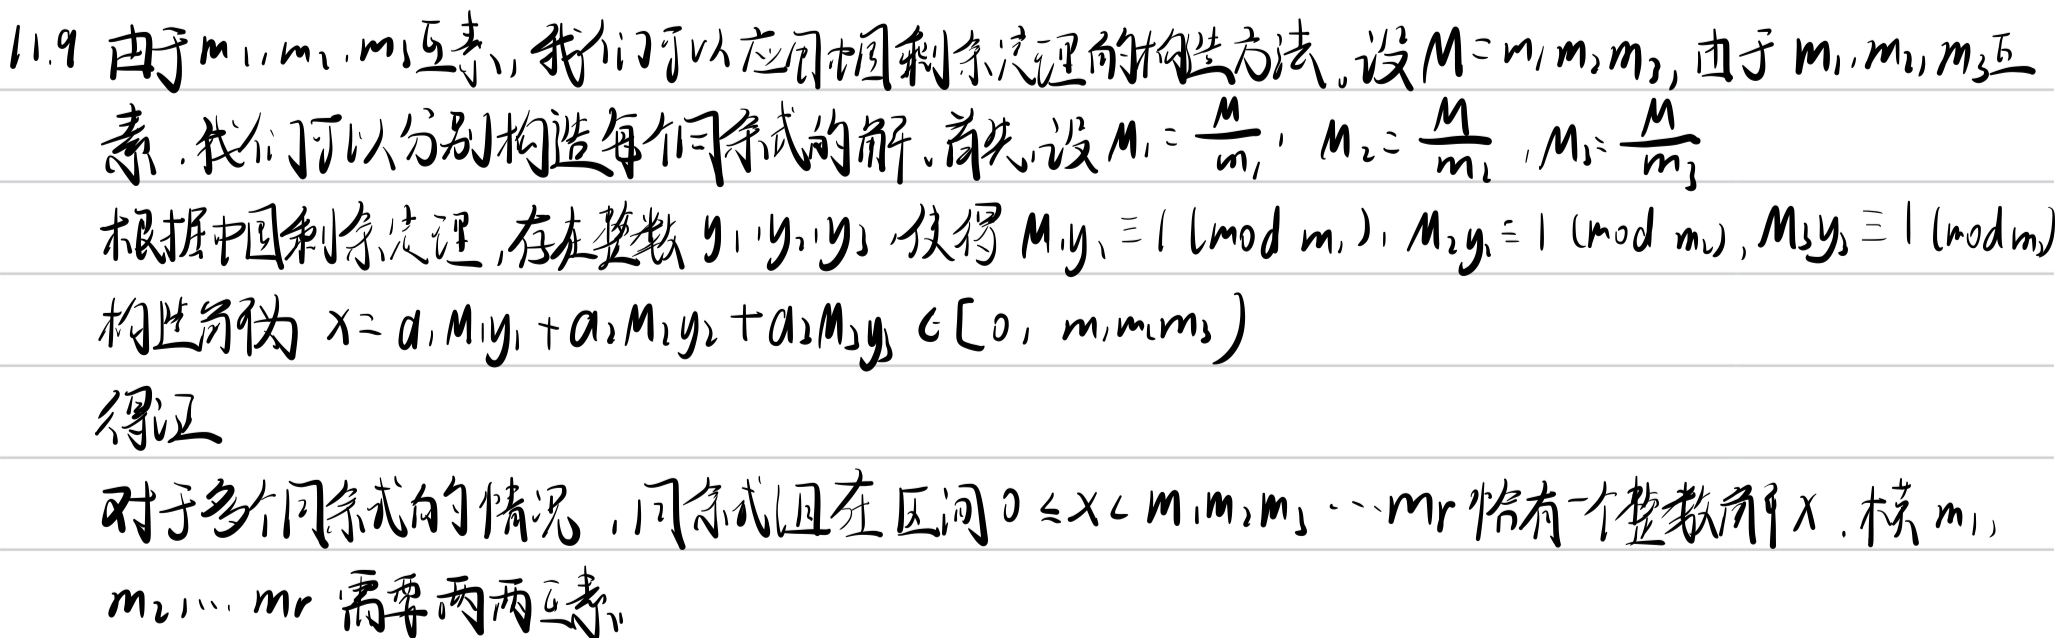 11.9 由于m₁,m₂,m₃互素,我们可以应用中国剩余定理的构造方法。设M=m₁m₂m₃,由于m₁,m₂,m₃互
素,我们可以分别构造每个同余式的解.首先,设M₁=M/m₁, M₂=M/m₂, M₃=M/m₃
根据中国剩余定理,存在整数 y₁,y₂,y₃,使得 M₁y₁≡1(mod m₁), M₂y₂≡1(mod m₂), M₃y₃≡1(mod m₃)
构造解为 x=a₁M₁y₁+a₂M₂y₂+a₃M₃y₃∈[0, m₁m₂m₃)
得证
对于多个同余式的情况,同余式组在区间0≤x<m₁m₂m₃…mr恰有一个整数解x.模m₁,
m₂,… mr 需要两两互素。